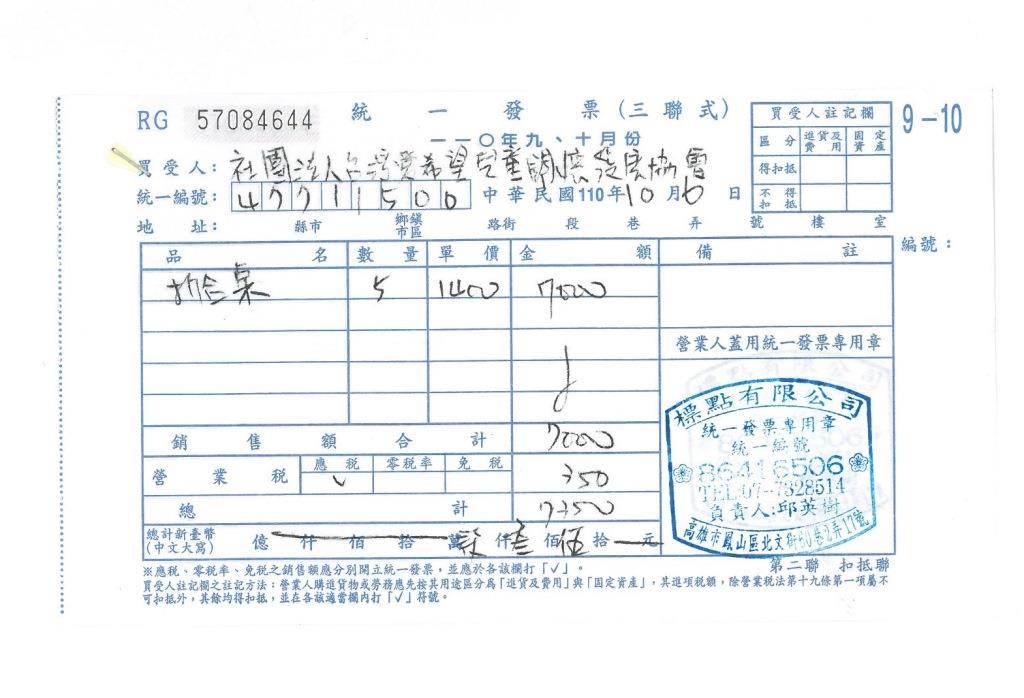 RG 57084644 統一發票(三聯式) 9-10
一一〇年九、十月份
買受人: 社團法人台灣愛希望兒童關懷發展協會
統一編號: 47711500 中華民國110年10月6日
地址: 縣市 鄉鎮市區 路街 段 巷 弄 號 樓 室
買受人註記欄
區分 進貨及費用 固定資產
得扣抵
不得扣抵
編號:
品名 數量 單價 金額 備註
折合桌 5 1400 7000
營業人蓋用統一發票專用章
銷售額合計 7000
營業稅 應稅 零稅率 免稅 350
✓
總計 7350
總計新臺幣(中文大寫) 億 仟 佰 拾 萬 柒仟 叁佰 伍拾 元
標點有限公司
統一發票專用章
統一編號
86416506
TEL:07-7328514
負責人:邱英樹
高雄市鳳山區北文街60巷2弄17號
第二聯 扣抵聯
※應稅、零稅率、免稅之銷售額應分別開立統一發票,並應於各該欄打「✓」。
買受人註記欄之註記方法:營業人購進貨物或勞務應先按其用途區分為「進貨及費用」與「固定資產」,其進項稅額,除營業稅法第十九條第一項屬不
可扣抵外,其餘均得扣抵,並在各該適當欄內打「✓」符號。